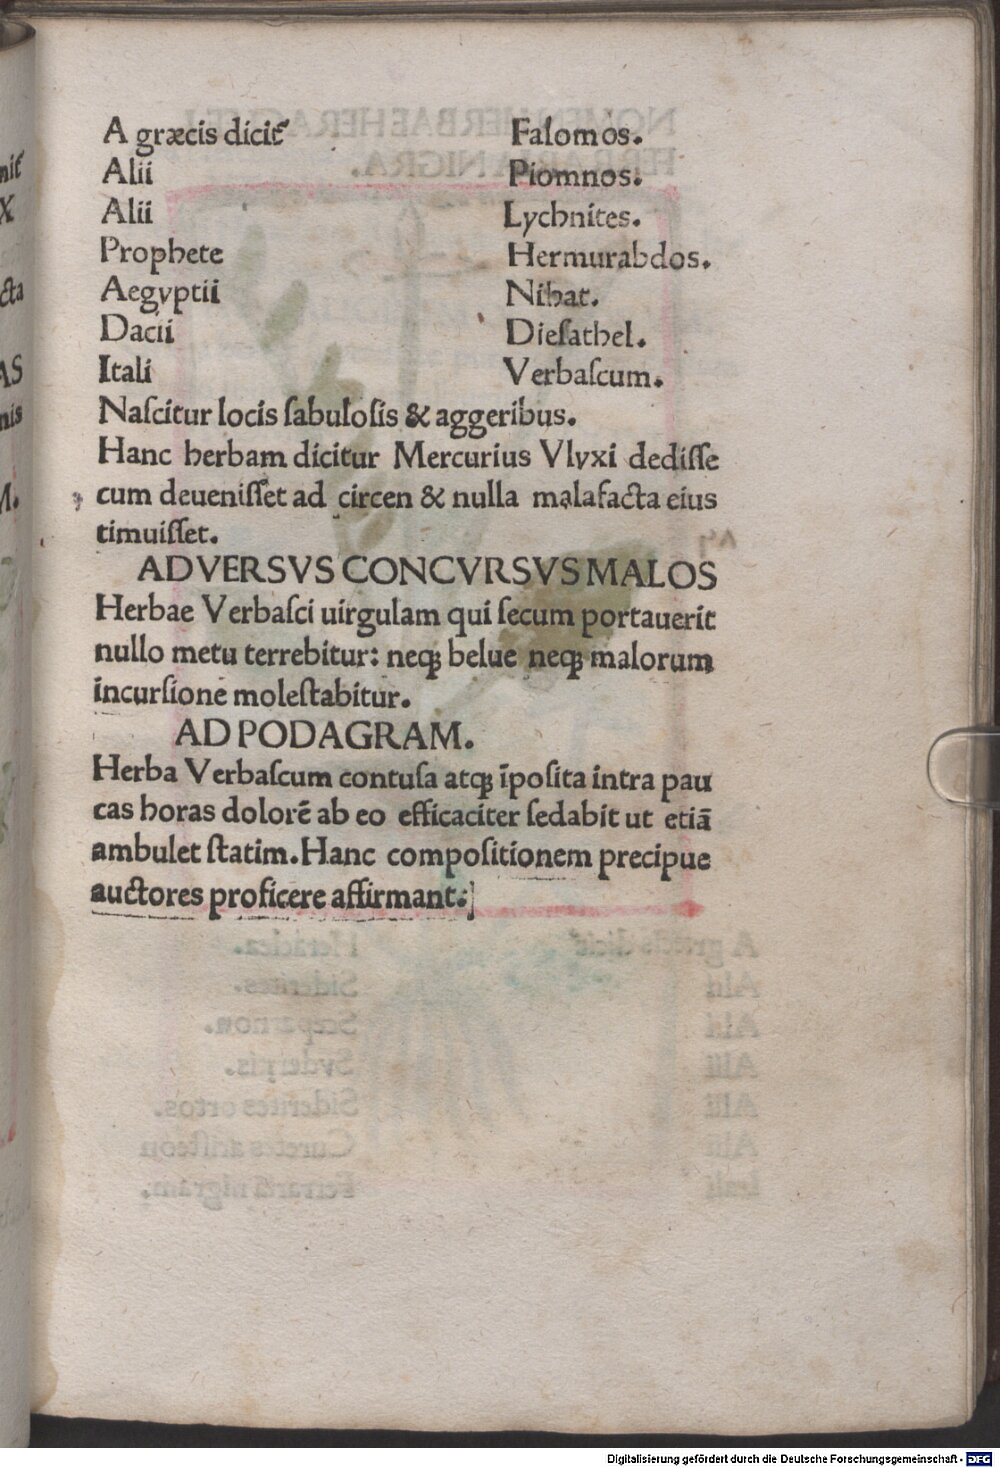 A græcis dicit᷑ Falomos.
Alii Piomnos.
Alii Lychnites.
Prophete Hermurabdos.
Aegyptii Nibat.
Dacii Dieſathel.
Itali Verbaſcum.
Naſcitur locis ſabuloſis & aggeribus.
Hanc herbam dicitur Mercurius Vlyxi dediſſe
cum deueniſſet ad circen & nulla malafacta eius
timuiſſet.
ADVERSVS CONCVRSVS MALOS
Herbae Verbaſci uirgulam qui ſecum portauerit
nullo metu terrebitur: neqꝫ belue neqꝫ malorum
incurſione moleſtabitur.
AD PODAGRAM.
Herba Verbaſcum contuſa atqꝫ īpoſita intra pau
cas horas dolorē ab eo efficaciter ſedabit ut etiā
ambulet ſtatim. Hanc compoſitionem precipue
auctores proficere affirmant:
Digitalisierung gefördert durch die Deutsche Forschungsgemeinschaft - DFG